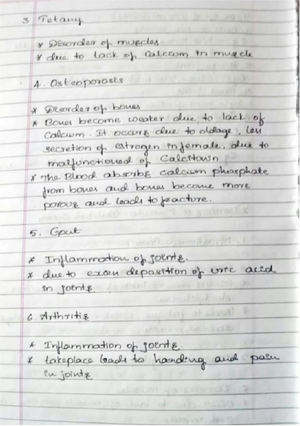 3. Tetany
* Disorder of muscles
* due to lack of Calcium in muscle
4. Osteoporosis
* Disorder of bones
* Bones become weater due to lack of
Calcium. It occurs due to oldage, less
secretion of estrogen in female, due to
malfunctioned of Calcitown
* The Blood absorbs calcium phosphate
from bones and bones become more
porous and leads to fracture.
5. Gout
* Inflammation of joints.
* due to excess deposition of uric acid
in joints
6 Arthritis
* Inflammation of joints.
* takeplace leads to handing and pain
in joints